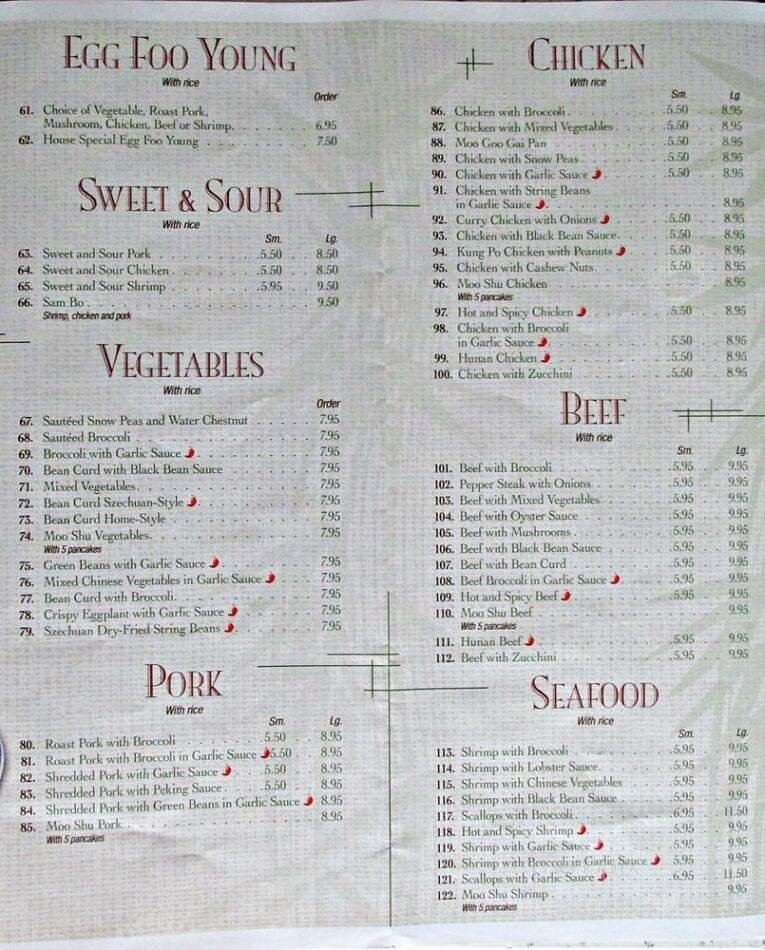 EGG FOO YOUNG
With rice
Order
61. Choice of Vegetable, Roast Pork,
Mushroom, Chicken, Beef or Shrimp. 6.95
62. House Special Egg Foo Young 7.50
SWEET & SOUR
With rice
Sm. Lg.
63. Sweet and Sour Pork 5.50 8.50
64. Sweet and Sour Chicken 5.50 8.50
65. Sweet and Sour Shrimp 5.95 9.50
66. Sam Bo 9.50
Shrimp, chicken and pork
VEGETABLES
With rice
Order
67. Sautéed Snow Peas and Water Chestnut 7.95
68. Sautéed Broccoli 7.95
69. Broccoli with Garlic Sauce 7.95
70. Bean Curd with Black Bean Sauce 7.95
71. Mixed Vegetables 7.95
72. Bean Curd Szechuan-Style 7.95
73. Bean Curd Home-Style 7.95
74. Moo Shu Vegetables 7.95
With 5 pancakes
75. Green Beans with Garlic Sauce 7.95
76. Mixed Chinese Vegetables in Garlic Sauce 7.95
77. Bean Curd with Broccoli 7.95
78. Crispy Eggplant with Garlic Sauce 7.95
79. Szechuan Dry-Fried String Beans 7.95
PORK
With rice
Sm. Lg.
80. Roast Pork with Broccoli 5.50 8.95
81. Roast Pork with Broccoli in Garlic Sauce 5.50 8.95
82. Shredded Pork with Garlic Sauce 5.50 8.95
83. Shredded Pork with Peking Sauce 5.50 8.95
84. Shredded Pork with Green Beans in Garlic Sauce 8.95
85. Moo Shu Pork 8.95
With 5 pancakes
CHICKEN
With rice
Sm. Lg.
86. Chicken with Broccoli 5.50 8.95
87. Chicken with Mixed Vegetables 5.50 8.95
88. Moo Goo Gai Pan 5.50 8.95
89. Chicken with Snow Peas 5.50 8.95
90. Chicken with Garlic Sauce 5.50 8.95
91. Chicken with String Beans
in Garlic Sauce 8.95
92. Curry Chicken with Onions 5.50 8.95
93. Chicken with Black Bean Sauce 5.50 8.95
94. Kung Po Chicken with Peanuts 5.50 8.95
95. Chicken with Cashew Nuts 5.50 8.95
96. Moo Shu Chicken 8.95
With 5 pancakes
97. Hot and Spicy Chicken 5.50 8.95
98. Chicken with Broccoli
in Garlic Sauce 5.50 8.95
99. Hunan Chicken 5.50 8.95
100. Chicken with Zucchini 5.50 8.95
BEEF
With rice
Sm. Lg.
101. Beef with Broccoli 5.95 9.95
102. Pepper Steak with Onions 5.95 9.95
103. Beef with Mixed Vegetables 5.95 9.95
104. Beef with Oyster Sauce 5.95 9.95
105. Beef with Mushrooms 5.95 9.95
106. Beef with Black Bean Sauce 5.95 9.95
107. Beef with Bean Curd 5.95 9.95
108. Beef Broccoli in Garlic Sauce 5.95 9.95
109. Hot and Spicy Beef 5.95 9.95
110. Moo Shu Beef 9.95
With 5 pancakes
111. Hunan Beef 5.95 9.95
112. Beef with Zucchini 5.95 9.95
SEAFOOD
With rice
Sm. Lg.
113. Shrimp with Broccoli 5.95 9.95
114. Shrimp with Lobster Sauce 5.95 9.95
115. Shrimp with Chinese Vegetables 5.95 9.95
116. Shrimp with Black Bean Sauce 5.95 9.95
117. Scallops with Broccoli 6.95 11.50
118. Hot and Spicy Shrimp 5.95 9.95
119. Shrimp with Garlic Sauce 5.95 9.95
120. Shrimp with Broccoli in Garlic Sauce 5.95 9.95
121. Scallops with Garlic Sauce 6.95 11.50
122. Moo Shu Shrimp 9.95
With 5 pancakes